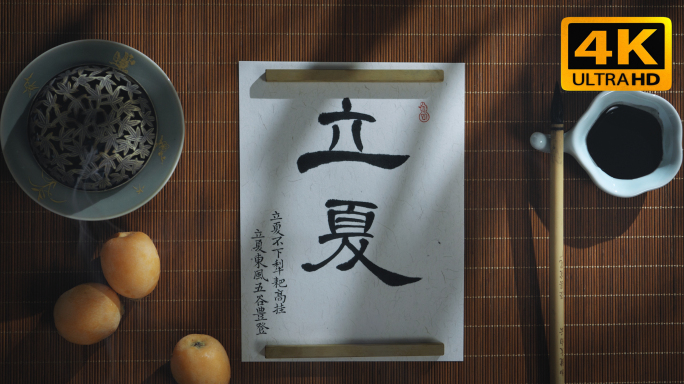 立夏
立夏不下犁耙高挂
立夏東風五谷豐登
4K
ULTRA HD